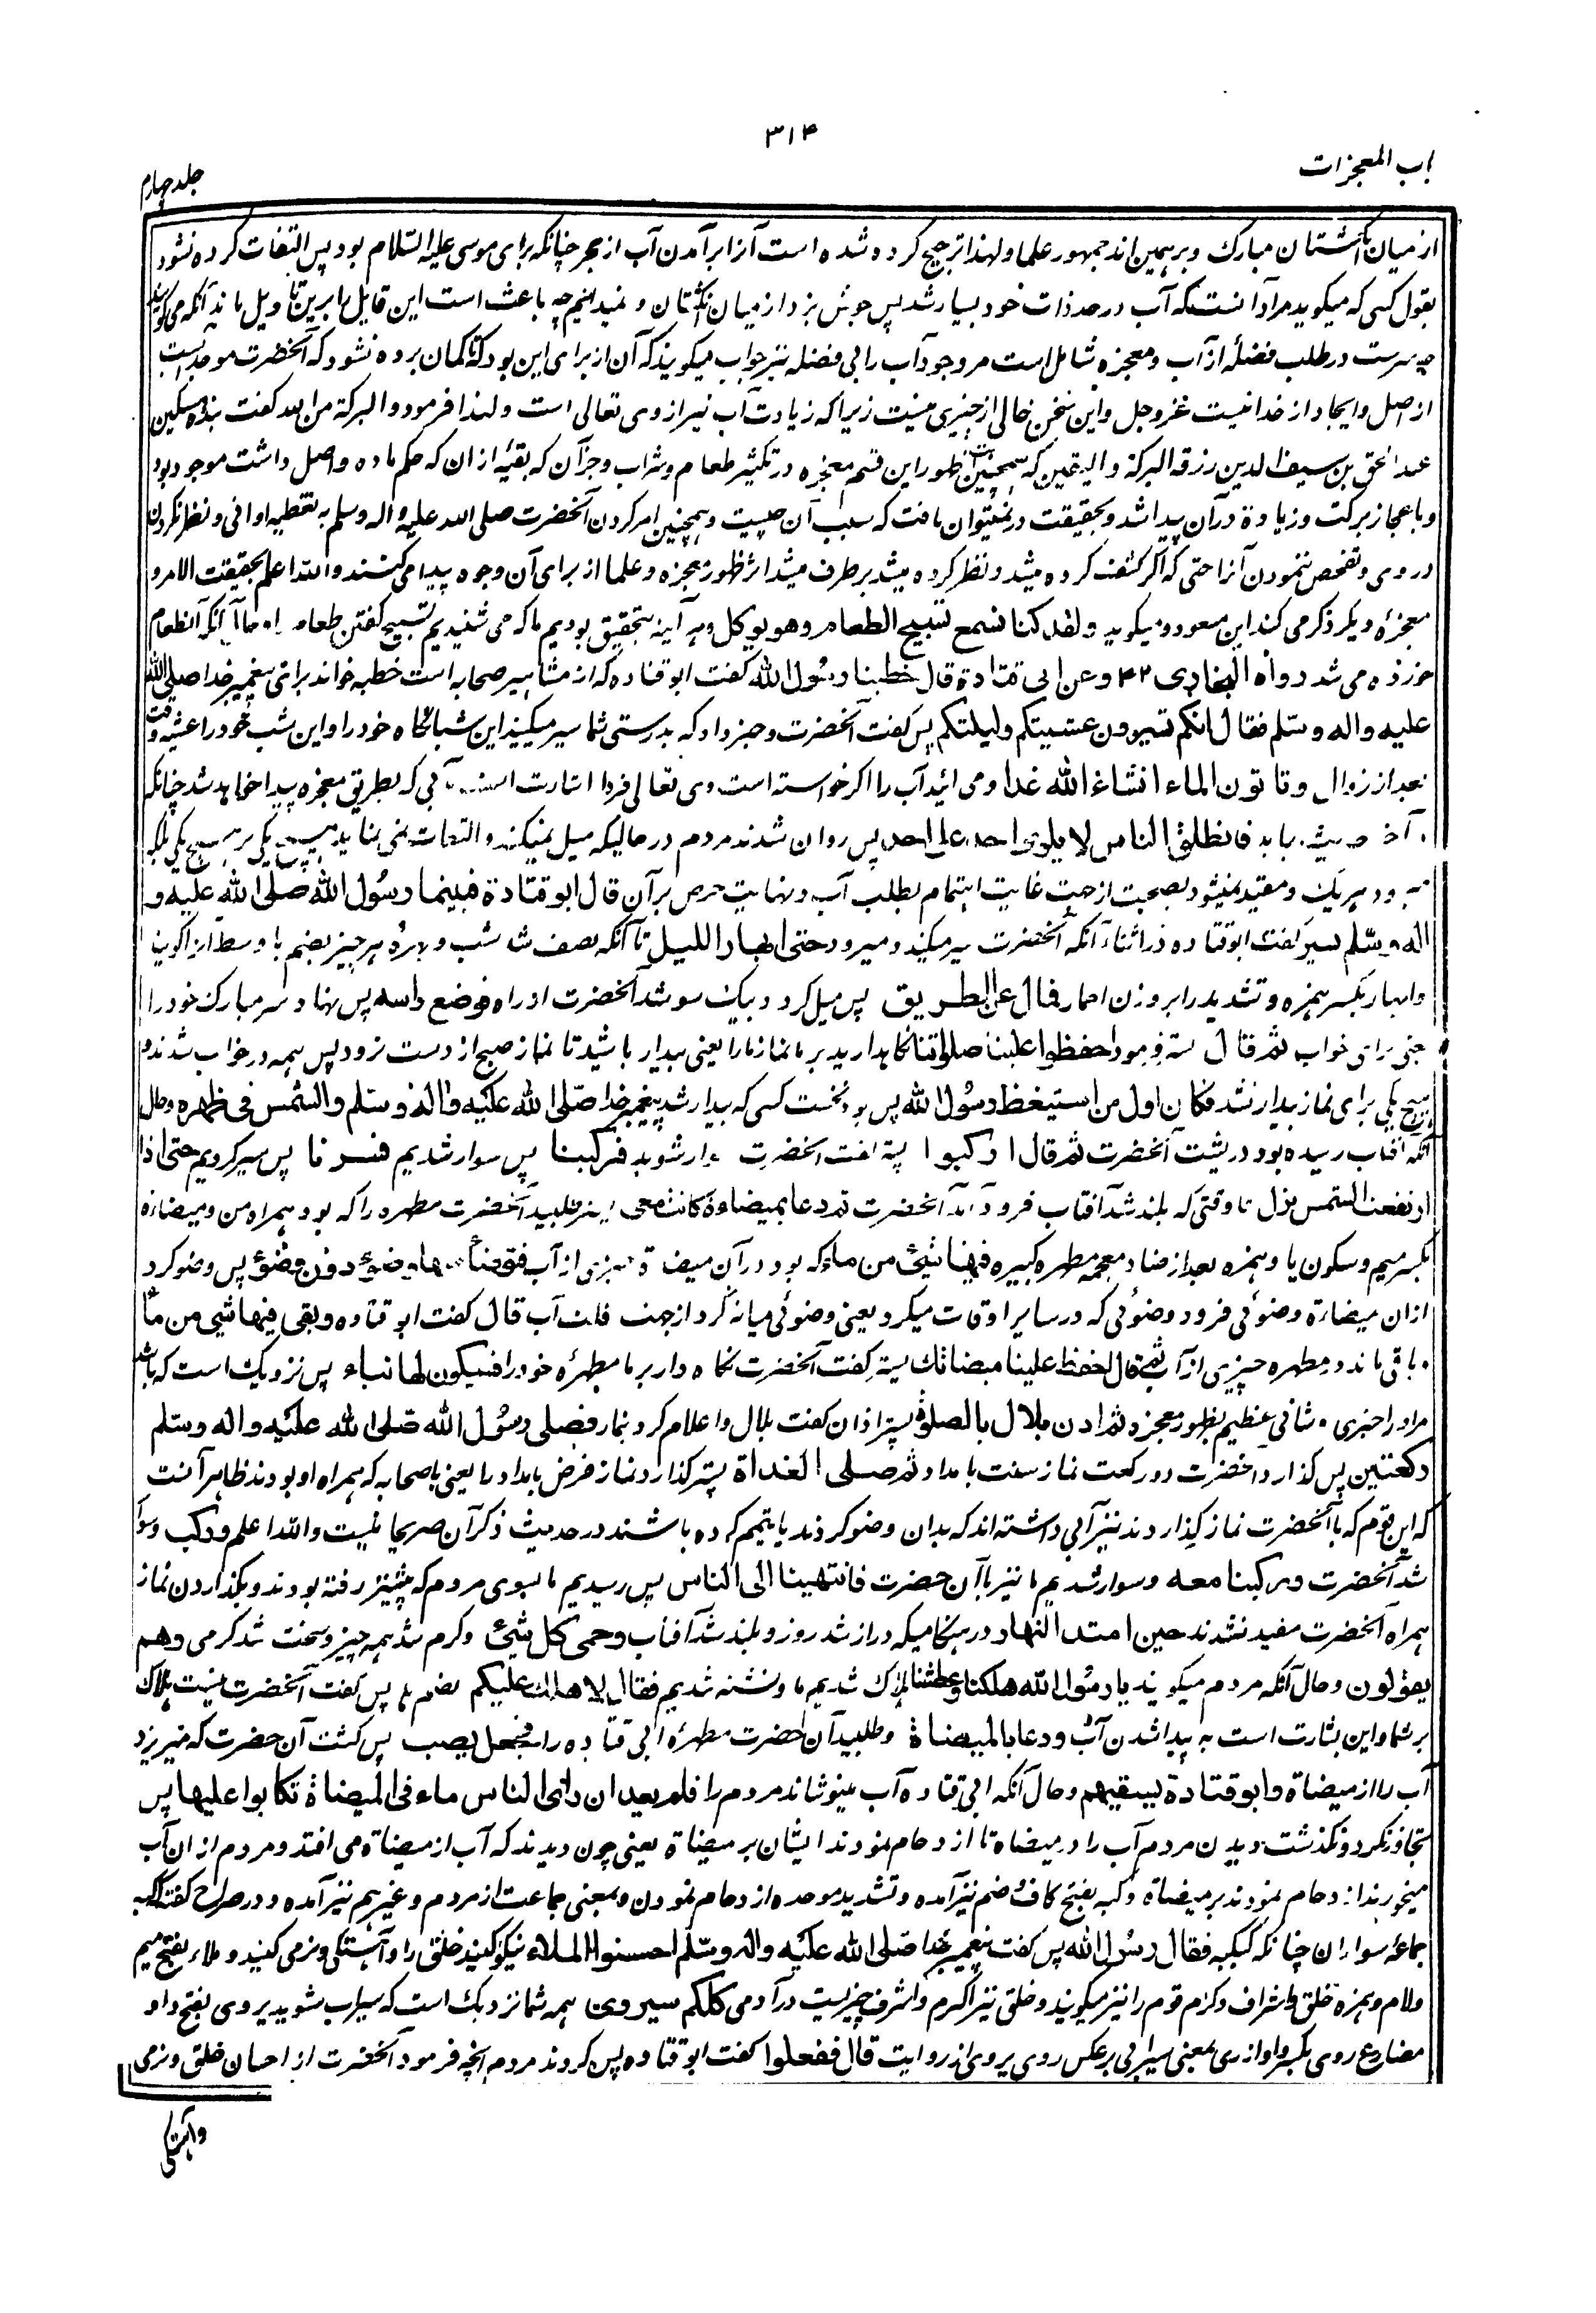 ۳۱۴
باب المعجزات
جلد چهارم
از میان انگشتان مبارک و بر همین اند جمهور علما و لهذا ترجیح کرده شده است آنرا بر آمدن آب از حجر چنانکه برای موسی علیه السلام بود پس التفات کرده نشود
بقول کسی که میگوید مراد آنست که آب در حد ذات خود بسیار شد پس جوش بزد از میان انگشتان و نمیدانیم چه باعث است این قایل را برین تاویل ماند آنکه می گویند
چه سرست در طلب فضلهٔ از آب و معجزه شامل است مر وجود آب را بی فضله نیز جواب میگویند که آن از برای این بود که تا گمان برده نشود که آنحضرت موجد است
از اصل و ایجاد از خدا نیست عز و جل و این سخن خالی از چیزی نیست زیرا که زیادت آب نیز از وی تعالی است و لهذا فرمود و البرکة من الله گفت بنده مسکین
عبد الحق بن سیف الدین رزقه البرکة و الیقین که همچنین ظهور این قسم معجزه در تکثیر طعام و شراب و جز آن که بقیهٔ از ان که حکم ماده و اصل داشت موجود بود
و باعجاز برکت و زیادة در آن پیدا شد و بحقیقت در نمیتوان یافت که سبب آن چیست و همچنین امر کردن آنحضرت صلی الله علیه و اله وسلم به تغطیه اوانی و نظر نکردن
در وی و تفحص ننمودن آنرا حتی که اگر کشف کرده میشد و نظر کرده میشد بر طرف میشد اثر ظهور معجزه و علما از برای آن وجوه پیدا می کنند و الله اعلم بحقیقت الامر و
معجزهٔ دیگر ذکر می کند ابن مسعود و میگوید ولقد کنا نسمع تسبیح الطعام وهو یوکل و هر آینه بتحقیق بودیم ما که می شنیدیم تسبیح گفتن طعام را و حال آنکه آن طعام
خورده می شد رواه البخاری ۴۲ وعن ابی قتادة قال خطبنا رسول الله گفت ابو قتاده که از مشاهیر صحابه است خطبه خواند برای ما پیغمبر خدا صلی الله
علیه واله وسلم فقال انکم تسیرون عشیتکم ولیلتکم پس گفت آنحضرت و خبر داد که بدرستی شما سیر میکنید این شبانگاه خود را و این شب خود را عشیه وقت
بعد از زوال وتاتون الماء انشاء الله غدا و می آئید آب را اگر خواسته است وی تعالی فردا اشارت است بآبی که بطریق معجزه پیدا خواهد شد چنانکه
در آخر حدیث بیاید فانطلق الناس لا یلوی احد علی احد پس روان شدند مردم در حالیکه میل نمیکند و التفات نمی نماید هیچ یکی بر هیچ یکی بلکه
میرود هر یک و مقید نمیشود بصحبت از جهت غایت اهتمام بطلب آب و نهایت حرص بر آن قال ابو قتادة فبینما رسول الله صلی الله علیه و
اله وسلم یسیر گفت ابو قتاده در اثناء آنکه آنحضرت سیر میکند و میرود حتی ابهار اللیل تا آنکه نصف شد شب و بهرهٔ هر چیز بضم با وسط او را گویند
و ابهار بکسر همزه و تشدید را بر وزن احمار فمال عن الطریق پس میل کرد و بیک سو شد آنحضرت از راه فوضع راسه پس نهاد سر مبارک خود را
یعنی برای خواب ثم قال پستر فرمود احفظوا علینا صلواتنا نگاهدارید بر ما نماز ما را یعنی بیدار باشید تا نماز صبح از دست نرود پس همه در خواب شدند و
هیچ یکی برای نماز بیدار نشد فکان اول من استیقظ رسول الله پس بود نخست کسی که بیدار شد پیغمبر خدا صلی الله علیه واله وسلم والشمس فی ظهره و حال
آنکه آفتاب رسیده بود در پشت آنحضرت ثم قال ارکبوا پستر گفت آنحضرت سوار شوید فرکبنا پس سوار شدیم فسرنا پس سیر کردیم حتی اذا
ارتفعت الشمس نزل تا وقتی که بلند شد آفتاب فرود آمد آنحضرت ثم دعا بمیضاءة کانت معی پستر طلبید آنحضرت مطهره را که بود همراه من و میضاءة
بکسر میم و سکون یا و همزه بعد از ضاد معجمه مطهره کبیره فیها شیئ من ماء که بود در آن میضاة چیزی از آب فتوضأ منها وضوء دون وضوء پس وضو کرد
از ان میضاءة وضوئی فرود وضوئی که در سایر اوقات میکرد یعنی وضوئی میانه کرد از جهت قلت آب قال گفت ابو قتاده وبقی فیها شیئ من ماء
و باقی ماند در مطهره چیزی از آب ثم قال احفظ علینا میضاتک پستر گفت آنحضرت نگاه دار بر ما مطهرهٔ خود را فسیکون لها نباء پس نزدیک است که باشد
مر او را خبری و شانی عظیم بظهور معجزه ثم اذن بلال بالصلوة پستر اذان گفت بلال و اعلام کرد بنماز فصلی رسول الله صلی الله علیه واله وسلم
رکعتین پس گذارد آنحضرت دو رکعت نماز سنت بامداد ثم صلی الغداة پستر گذارد نماز فرض بامداد را یعنی با صحابه که همراه او بودند ظاهر آنست
که این قوم که با آنحضرت نماز گذاردند نیز آبی داشته اند که بدان وضو کردند یا تیمم کرده باشند در حدیث ذکر آن صریحا نیست و الله اعلم ورکب و سوار
شد آنحضرت ورکبنا معه و سوار شدیم ما نیز با آن حضرت فانتهینا الی الناس پس رسیدیم ما بسوی مردم که پیشتر رفته بودند و بگذاردن نماز
همراه آنحضرت مقید نشدند حین امتد النهار در هنگامیکه دراز شد روز و بلند شد آفتاب وحمی کل شیئ و گرم شد همه چیز و سخت شد گرمی وهم
یقولون و حال آنکه مردم میگویند یا رسول الله هلکنا وعطشنا هلاک شدیم ما و تشنه شدیم فقال لا هلک علیکم بضم ها پس گفت آنحضرت نیست هلاک
بر شما و این بشارت است به پیدا شدن آب ودعا بالمیضاة و طلبید آن حضرت مطهرهٔ ابی قتاده را فجعل یصب پس گشت آن حضرت که میریزد
آب را از میضاة وابو قتادة یسقیهم و حال آنکه ابی قتاده آب مینوشاند مردم را فلم یعد ان رای الناس ماء فی المیضاة تکابوا علیها پس
تجاوز نکرد و نگذشت دیدن مردم آب را در میضاه تا ازدحام نمودند ایشان بر میضاة یعنی چون دیدند که آب از میضاة می افتد و مردم از ان آب
میخورند ازدحام نمودند بر میضاة و کبه بفتح کاف و ضم نیز آمده و تشدید موحده ازدحام نمودن و بمعنی جماعت از مردم و غیر هم نیز آمده و در صراح گفته کبه
جماعهٔ سواران چنانکه کبکبه فقال رسول الله پس گفت پیغمبر خدا صلی الله علیه واله وسلم احسنوا الملاء نیکو کنید خلق را و آهستگی و نرمی کنید و ملاء بفتح میم
و لام و همزه خلق و اشراف و کرام قوم را نیز میگویند و خلق نیز اکرم و اشرف چیزیست در آدمی کلکم سیروی همه شما نزدیک است که سیراب شوید یروی بفتح واو
مضارع روی بکسر واو از ری بمعنی سیرابی بر عکس روی یروی از روایت قال ففعلوا گفت ابو قتاده پس کردند مردم آنچه فرمود آنحضرت از احسان خلق و نرمی
و آهستگی